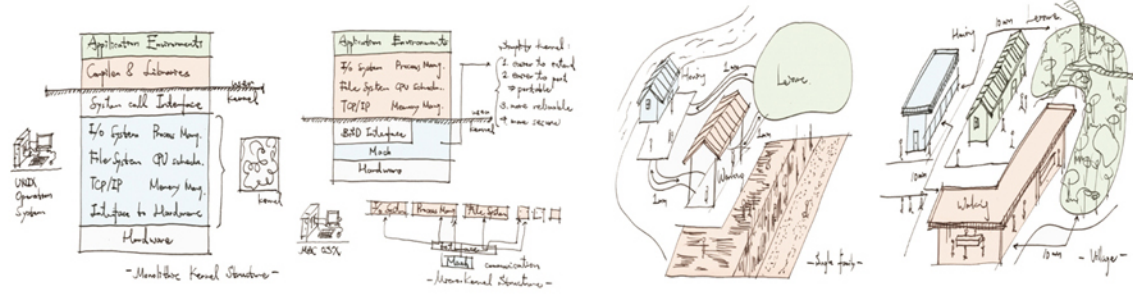 Application Environments
Compiler & Libraries
user
kernel
System call Interface
I/O System Process Mang.
File System CPU schedu.
TCP/IP Memory Mang.
Interface to Hardware
Hardware
UNIX
Operation
System
kernel
- Monolithic Kernel Structure -
Application Environments
I/O System Process Mang.
File System CPU schedu.
TCP/IP Memory Mang.
user
kernel
BSD Interface
Mach
Hardware
simplify kernel:
1. easier to extend
2. easier to port
portable
3. more reliable
more secure
I/O System
Process Mang
File System
Interface
Mach
communication
MAC OSX
- Microkernel Structure -
Housing
1min
Leisure
1min
Working
1min
- Single family -
Housing
10min
Leisure
10min
Working
10min
- Village -